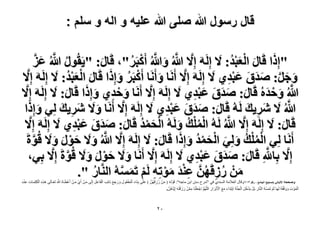 قال رسول الله صلى الله عليه و اله و سلم :
"إِذَا قَالَ الْعَبْدُ: لَا إِلَهَ إِلَّا اللَّهُ وَاللَّهُ أَكْبَرُ"، قَالَ: "يَقُولُ اللَّهُ عَزَّ
وَجَلَّ: صَدَقَ عَبْدِي لَا إِلَهَ إِلَّا أَنَا وَأَنَا أَكْبَرُ وَإِذَا قَالَ الْعَبْدُ: لَا إِلَهَ إِلَّا
اللَّهُ وَحْدَهُ قَالَ: صَدَقَ عَبْدِي لَا إِلَهَ إِلَّا أَنَا وَحْدِي وَإِذَا قَالَ: لَا إِلَهَ إِلَّا
اللَّهُ لَا شَرِيكَ لَهُ قَالَ: صَدَقَ عَبْدِي لَا إِلَهَ إِلَّا أَنَا وَلَا شَرِيكَ لِي وَإِذَا
قَالَ: لَا إِلَهَ إِلَّا اللَّهُ لَهُ الْمُلْكُ وَلَهُ الْحَمْدُ قَالَ: صَدَقَ عَبْدِي لَا إِلَهَ إِلَّا
أَنَا لِي الْمُلْكُ وَلِيَ الْحَمْدُ وَإِذَا قَالَ: لَا إِلَهَ إِلَّا اللَّهُ وَلَا حَوْلَ وَلَا قُوَّةَ
إِلَّا بِاللَّهِ قَالَ: صَدَقَ عَبْدِي لَا إِلَهَ إِلَّا أَنَا وَلَا حَوْلَ وَلَا قُوَّةَ إِلَّا بِي،
مَنْ رُزِقَهُنَّ عِنْدَ مَوْتِهِ لَمْ تَمَسَّهُ النَّارُ ".
٢٠